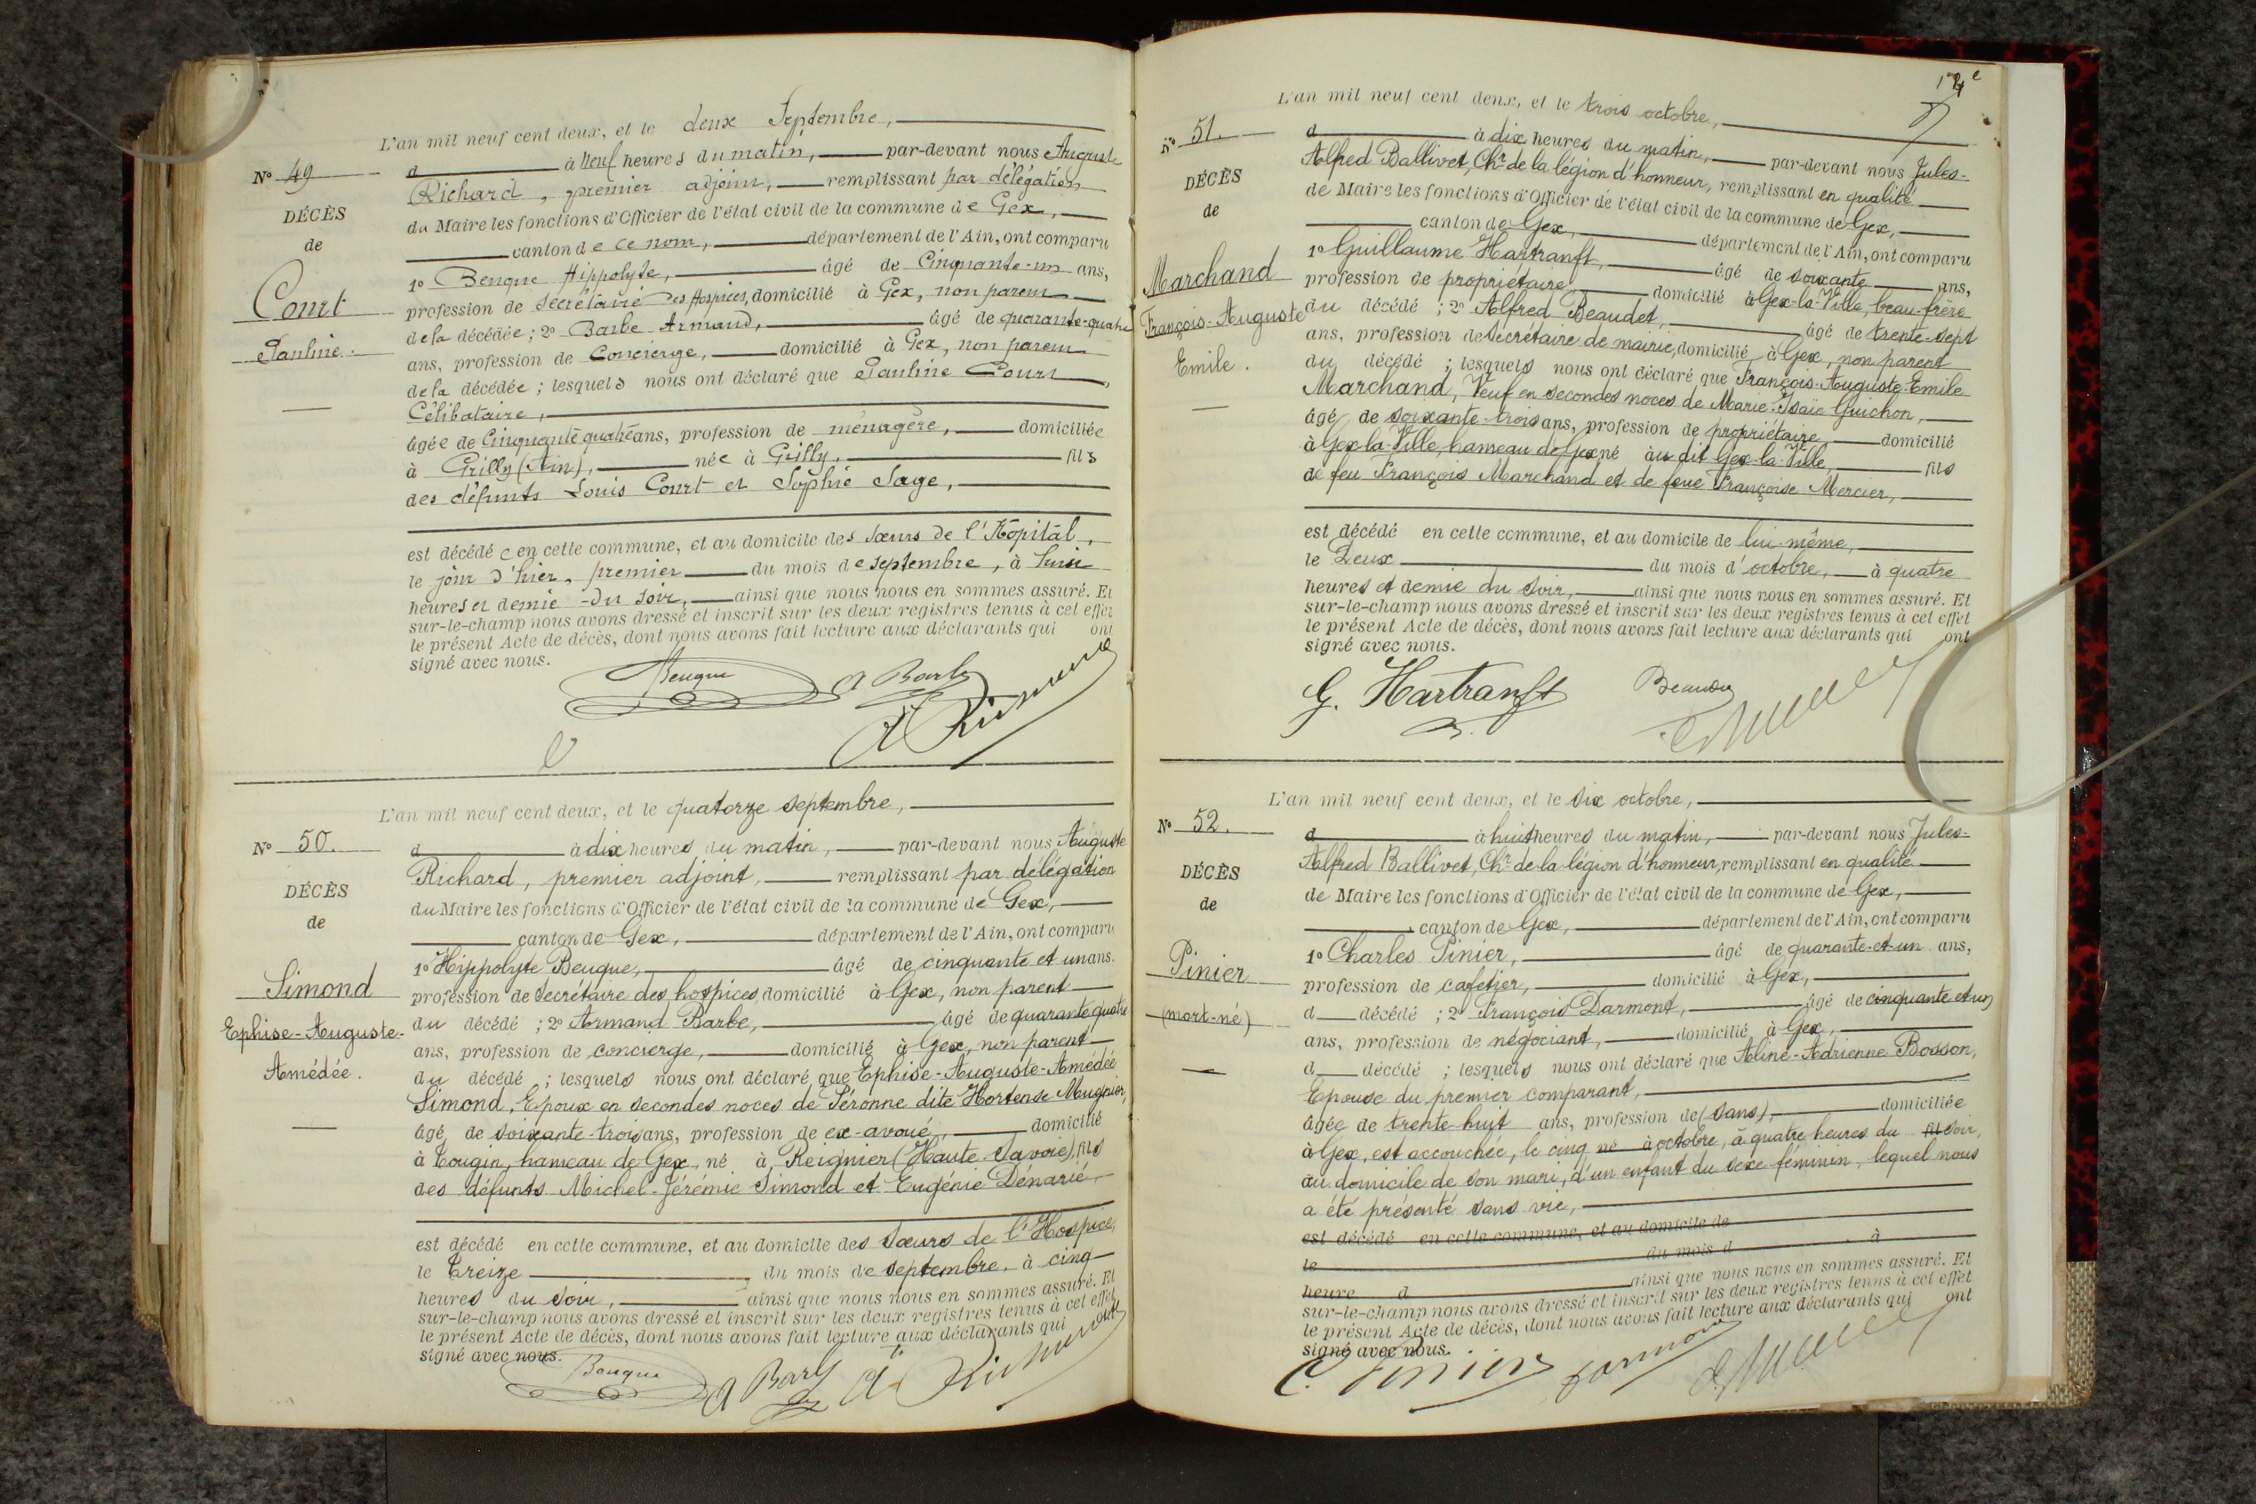 L'an mil neuf cent deux, et le deux Septembre,
No 49
à Neuf heures du matin, par-devant nous Auguste
Richard, premier adjoint, remplissant par délégation
DÉCÈS
du Maire les fonctions d'Officier de l'état civil de la commune de Gex,
de
canton de ce nom, département de l'Ain, ont comparu
1o Beuque Hippolyte, âgé de Cinquante-un ans,
Court
profession de Secrétaire des Hospices, domicilié à Gex, non parent
de la décédée ; 2o Barbe Armand, âgé de quarante-quatre
Pauline.
ans, profession de Concierge, domicilié à Gex, non parent
de la décédée ; lesquels nous ont déclaré que Pauline Court,
Célibataire,
âgée de Cinquante quatre ans, profession de ménagère, domiciliée
à Grilly (Ain), née à Grilly, fils
des défunts Louis Court et Sophie Sage,
est décédée en cette commune, et au domicile des sœurs de l'Hôpital,
le jour d'hier, premier du mois de septembre, à huit
heures et demie du soir, ainsi que nous nous en sommes assuré. Et
sur-le-champ nous avons dressé et inscrit sur les deux registres tenus à cet effet
le présent Acte de décès, dont nous avons fait lecture aux déclarants qui ont
signé avec nous.
Beuque A Barbe
L'an mil neuf cent deux, et le quatorze septembre,
No 50.
d à dix heures du matin, par-devant nous Auguste
Richard, premier adjoint, remplissant par délégation
DÉCÈS
du Maire les fonctions d'Officier de l'état civil de la commune de Gex,
de
canton de Gex, département de l'Ain, ont comparu
1o Hippolyte Beuque, âgé de cinquante et un ans.
Simond
profession de Secrétaire des hospices, domicilié à Gex, non parent
Ephise-Auguste-
du décédé ; 2o Armand Barbe, âgé de quarante quatre
Amédée.
ans, profession de concierge, domicilié à Gex, non parent
du décédé ; lesquels nous ont déclaré que Ephise-Auguste-Amédée
Simond, Epoux en secondes noces de Péronne dite Hortense Mugnier,
âgé de soixante-trois ans, profession de ex-avoué, domicilié
à Tougin, hameau de Gex, né à Reignier (Haute-Savoie), fils
des défunts Michel-Jérémie Simond et Eugénie Dénarié,
est décédé en cette commune, et au domicile des sœurs de l'Hospice,
le Treize du mois de septembre, à cinq
heures du soir, ainsi que nous nous en sommes assuré. Et
sur-le-champ nous avons dressé et inscrit sur les deux registres tenus à cet effet
le présent Acte de décès, dont nous avons fait lecture aux déclarants qui ont
signé avec nous.
Beuque A Barbe
L'an mil neuf cent deux, et le trois octobre,
No 51.
d à dix heures du matin, par-devant nous Jules-
Alfred Ballivet, Chr de la légion d'honneur, remplissant en qualité
DÉCÈS
de Maire les fonctions d'Officier de l'état civil de la commune de Gex,
de
canton de Gex, département de l'Ain, ont comparu
1o Guillaume Hartranft, âgé de soixante ans,
Marchand
profession de propriétaire, domicilié à Gex-la-Ville, beau-frère
François-Auguste
du décédé ; 2o Alfred Beaudet, âgé de trente-sept
Emile.
ans, profession de Secrétaire de mairie, domicilié à Gex, non parent
du décédé ; lesquels nous ont déclaré que François-Auguste-Emile
Marchand, Veuf en secondes noces de Marie-Isaïe Guichon,
âgé de soixante-trois ans, profession de propriétaire, domicilié
à Gex-la-Ville, hameau de Gex né au dit Gex-la-Ville, fils
de feu François Marchand et de feue Françoise Mercier,
est décédé en cette commune, et au domicile de lui-même,
le Deux du mois d'octobre, à quatre
heures et demie du soir, ainsi que nous nous en sommes assuré. Et
sur-le-champ nous avons dressé et inscrit sur les deux registres tenus à cet effet
le présent Acte de décès, dont nous avons fait lecture aux déclarants qui ont
signé avec nous.
G. Hartranft Beaudet
L'an mil neuf cent deux, et le six octobre,
No 52.
d à huit heures du matin, par-devant nous Jules-
Alfred Ballivet, Chr de la légion d'honneur, remplissant en qualité
DÉCÈS
de Maire les fonctions d'Officier de l'état civil de la commune de Gex,
de
canton de Gex, département de l'Ain, ont comparu
1o Charles Pinier, âgé de quarante-et-un ans,
Pinier
profession de cafetier, domicilié à Gex,
(mort-né)
d décédé ; 2o François Darmont, âgé de cinquante et un
ans, profession de négociant, domicilié à Gex,
d décédé ; lesquels nous ont déclaré que Aline-Adrienne Bosson,
Epouse du premier comparant,
âgée de trente-huit ans, profession de (sans), domiciliée
à Gex, est accouchée, le cinq né à octobre, à quatre heures du fil soir,
au domicile de son mari, d'un enfant du sexe féminin, lequel nous
a été présenté sans vie,
est décédé en cette commune, et au domicile de
le du mois d à
heure d ainsi que nous nous en sommes assuré. Et
sur-le-champ nous avons dressé et inscrit sur les deux registres tenus à cet effet
le présent Acte de décès, dont nous avons fait lecture aux déclarants qui ont
signé avec nous.
C. Pinier Darmont